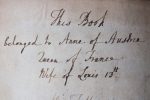 This Book
belonged to Anne of Austria
Queen of France
Wife of Louis 13th.